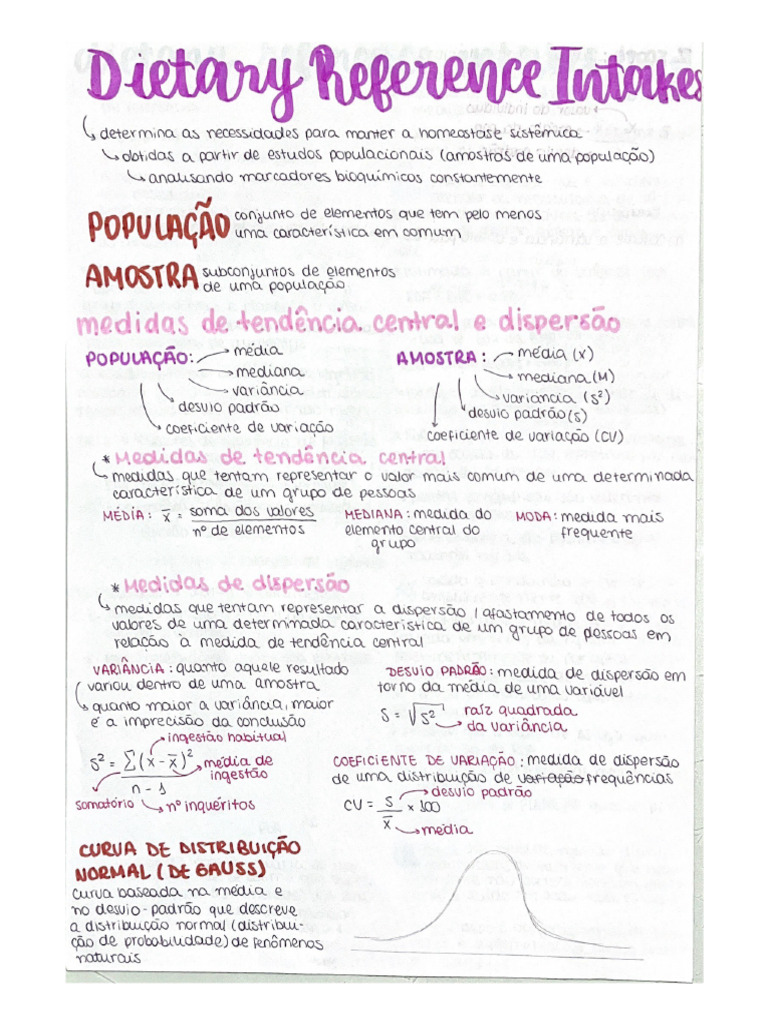 Dietary Reference Intakes
determina as necessidades para manter a homeostase sistêmica
obtidas a partir de estudos populacionais (amostras de uma população)
analisando marcadores bioquímicos constantemente
POPULAÇÃO conjunto de elementos que tem pelo menos
uma característica em comum
AMOSTRA subconjuntos de elementos
de uma população
medidas de tendência central e dispersão
POPULAÇÃO: média
mediana
variância
desvio padrão
coeficiente de variação
AMOSTRA: média (x)
mediana (M)
variância (s²)
desvio padrão (s)
coeficiente de variação (CV)
* Medidas de tendência central
medidas que tentam representar o valor mais comum de uma determinada
característica de um grupo de pessoas
MÉDIA: x̅ = soma dos valores
nº de elementos
MEDIANA: medida do
elemento central do
grupo
MODA: medida mais
frequente
* Medidas de dispersão
medidas que tentam representar a dispersão / afastamento de todos os
valores de uma determinada característica de um grupo de pessoas em
relação à medida de tendência central
VARIÂNCIA: quanto aquele resultado
variou dentro de uma amostra
quanto maior a variância, maior
é a imprecisão da conclusão
ingestão habitual
s² = ∑(x - x̅)²
n - 1
média de
ingestão
somatório
nº inquéritos
DESVIO PADRÃO: medida de dispersão em
torno da média de uma variável
s = √s²
raíz quadrada
da variância
COEFICIENTE DE VARIAÇÃO: medida de dispersão
de uma distribuição de variação frequências
desvio padrão
CV = s × 100
x̅
média
CURVA DE DISTRIBUIÇÃO
NORMAL (DE GAUSS)
curva baseada na média e
no desvio-padrão que descreve
a distribuição normal (distribui-
ção de probabilidade) de fenômenos
naturais